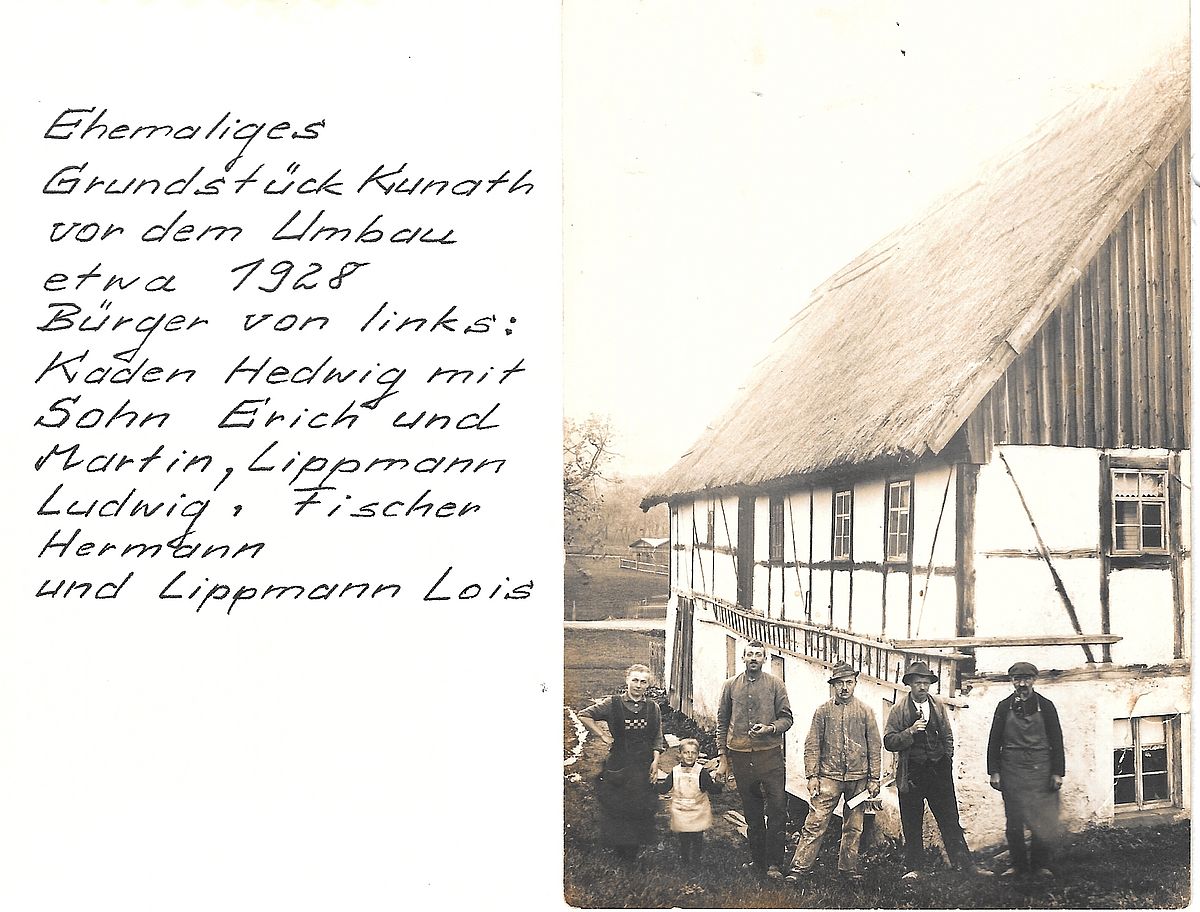 Ehemaliges
Grundstück Kunath
vor dem Umbau
etwa 1928
Bürger von links:
Kaden Hedwig mit
Sohn Erich und
Martin, Lippmann
Ludwig. Fischer
Hermann
und Lippmann Lois